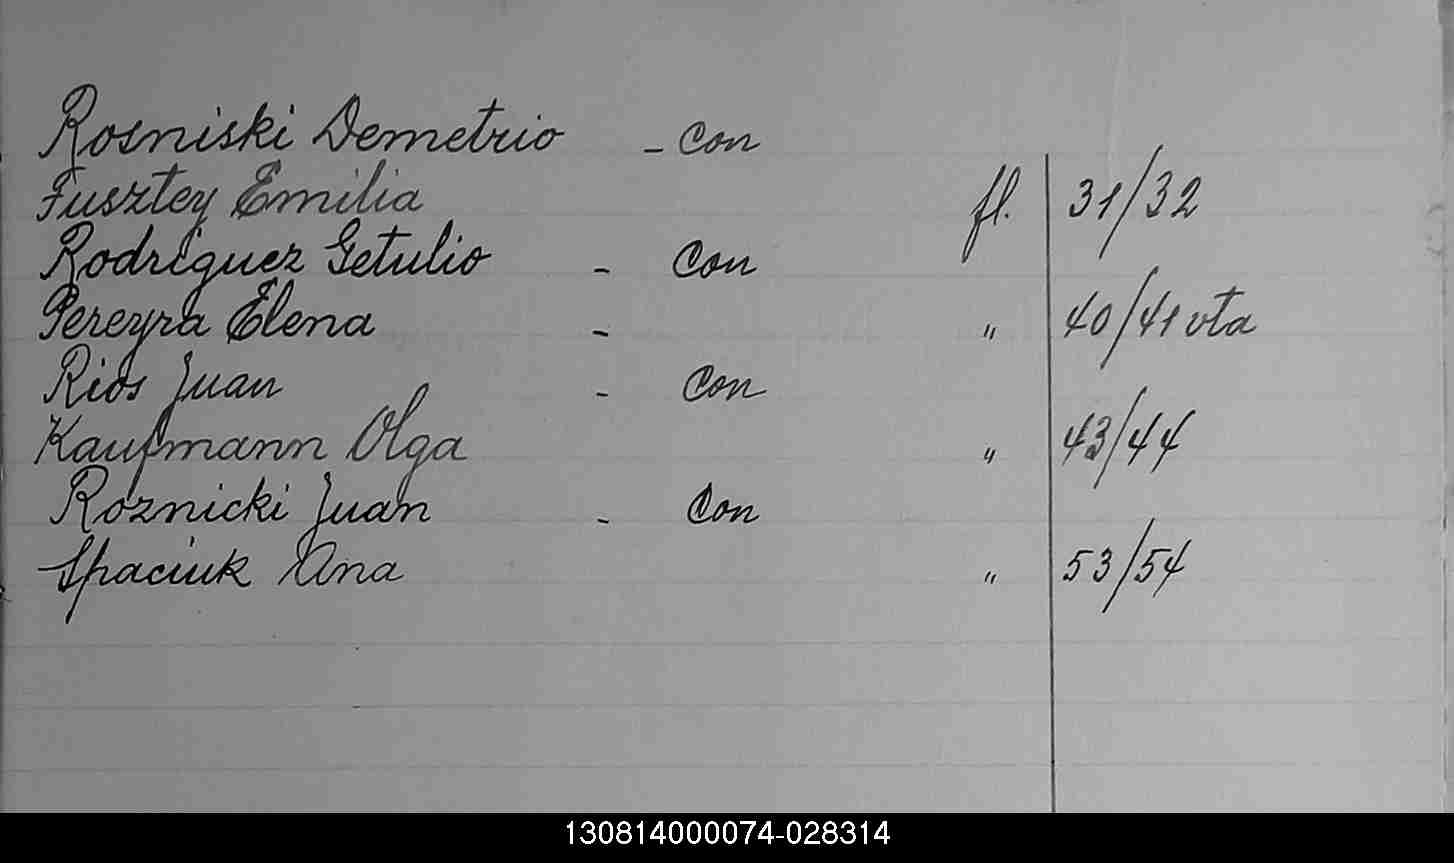 Rosniski Demetrio - Con
Fusztey Emilia fl. 31/32
Rodriguez Getulio - Con
Pereyra Elena - " 40/41 vta
Rios Juan - Con
Kaufmann Olga " 43/44
Roznicki Juan - Con
Spaciuk Ana " 53/54
130814000074-028314